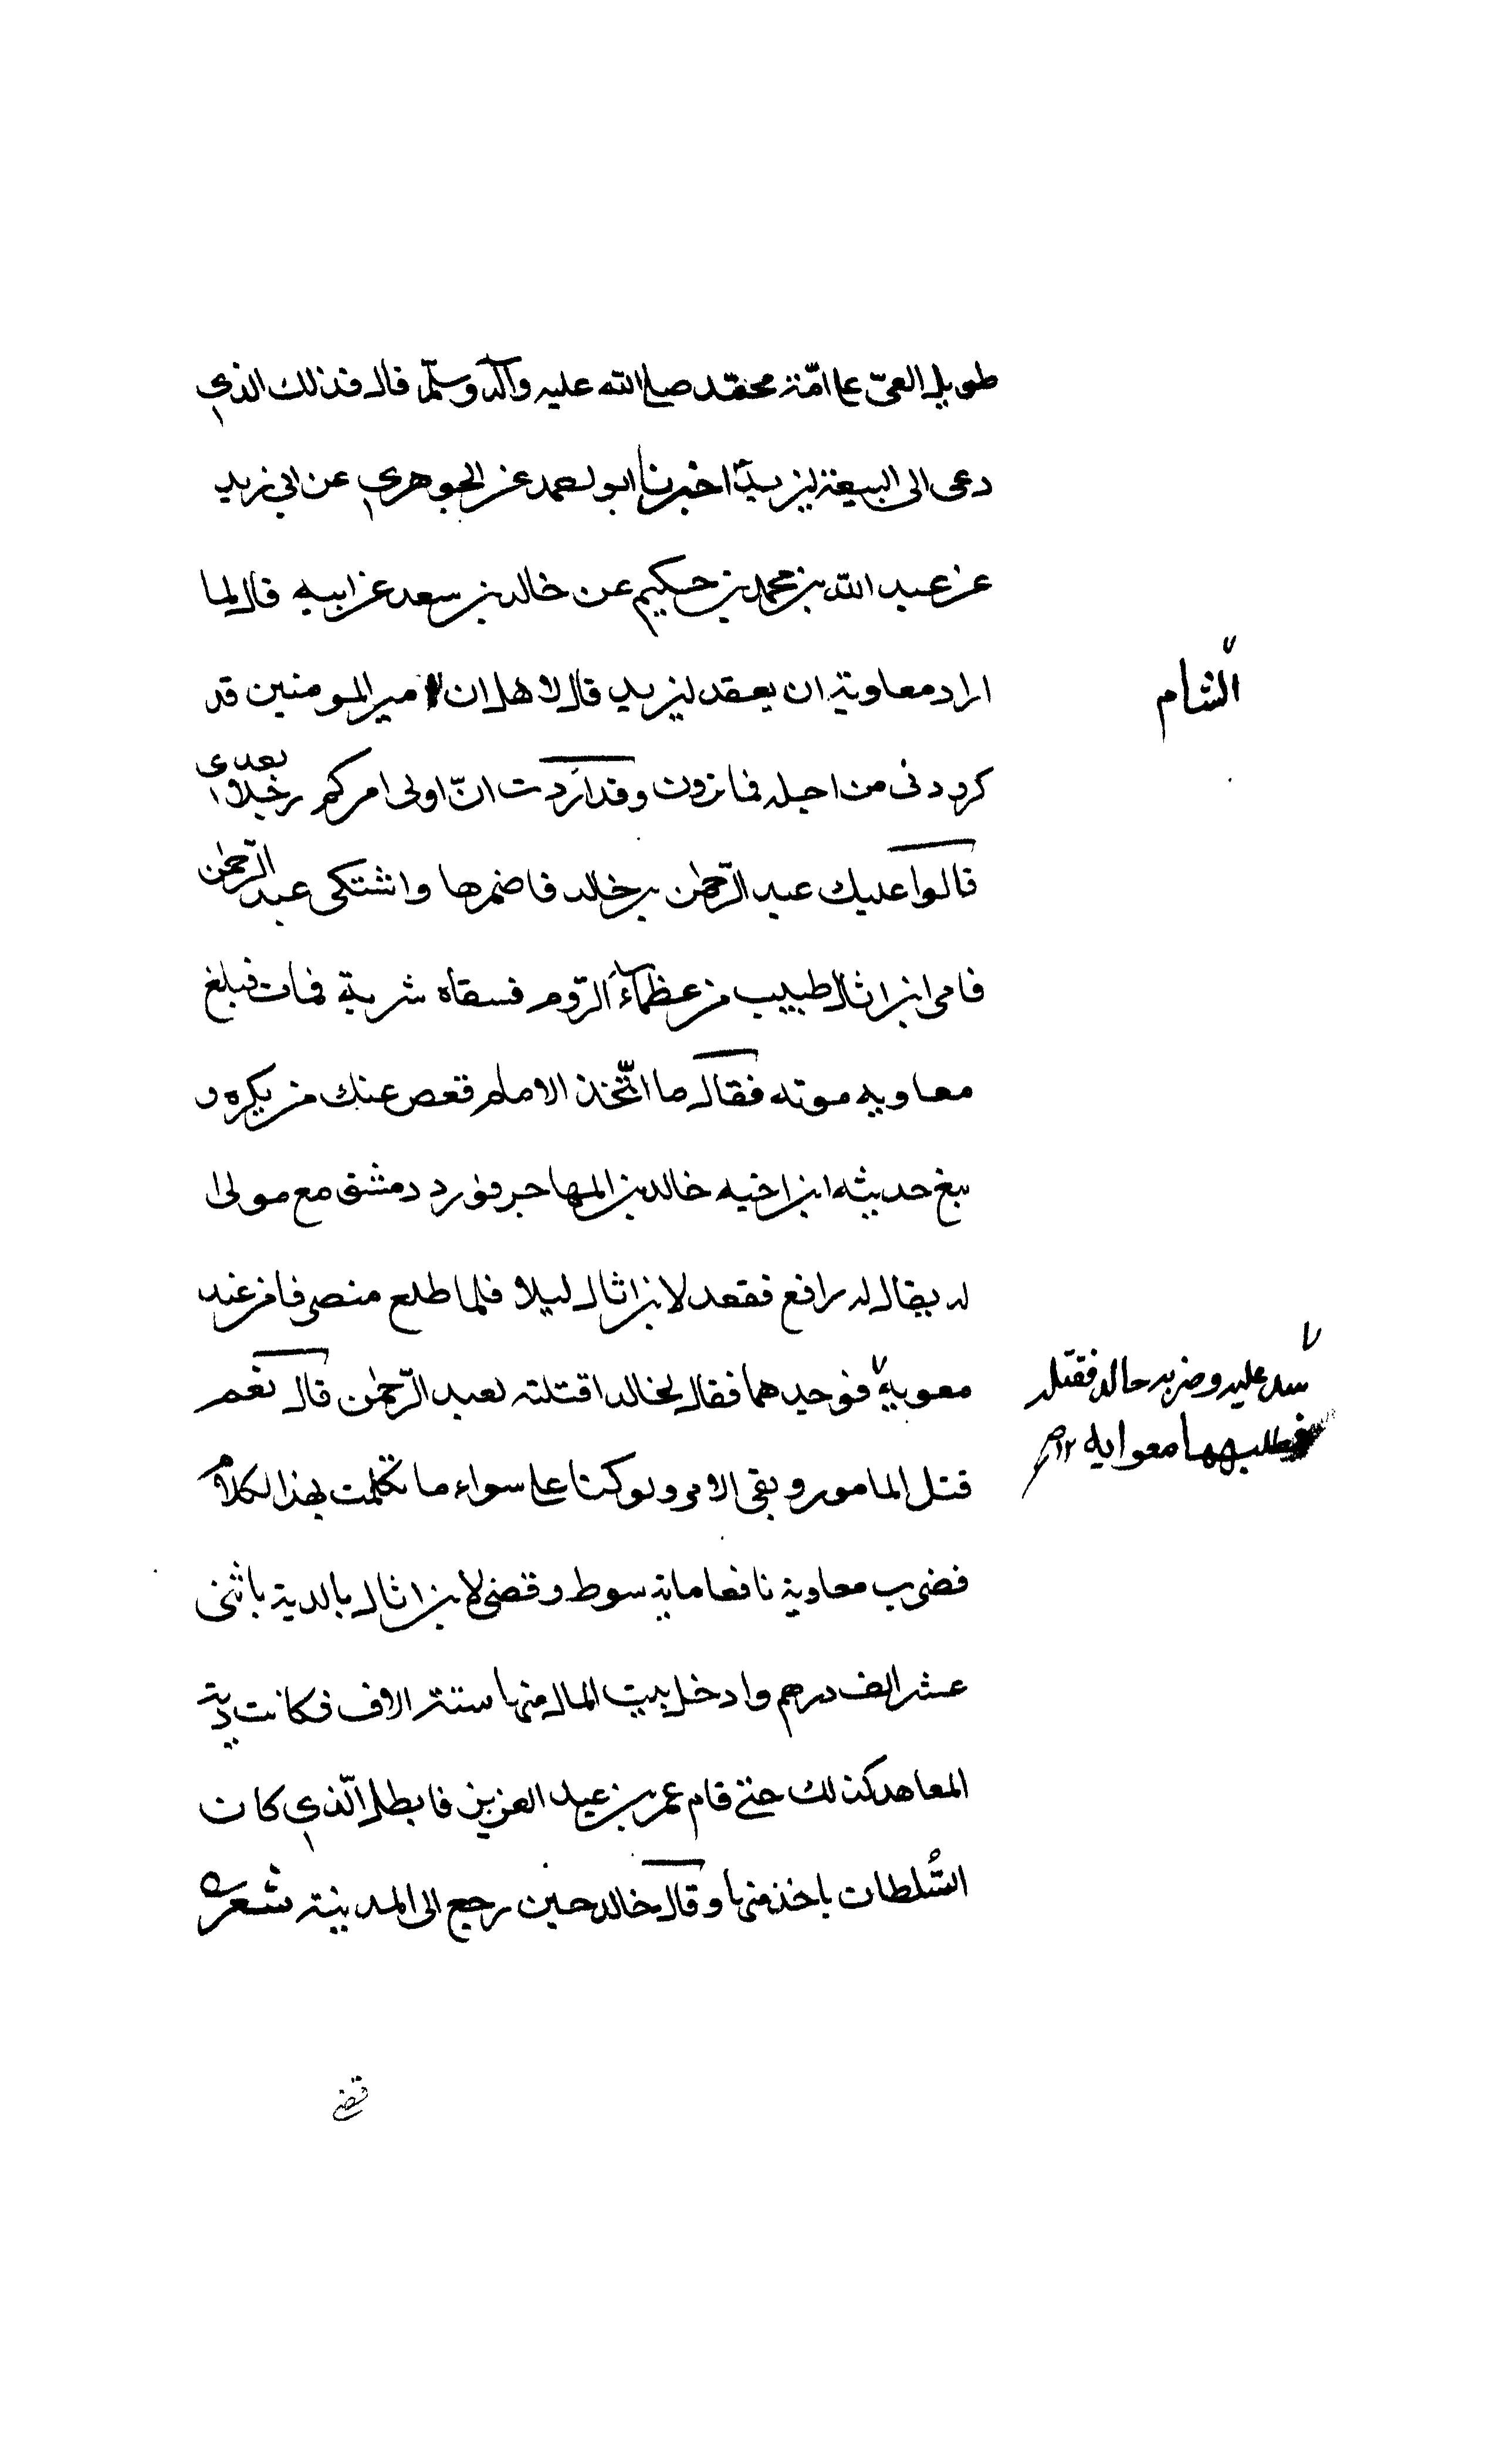 طويل العمّى على امّة محمّد صلى الله عليه وآله وسلّم قال فذلك الذي
دعى الى البيعة ليزيد اخبرنا ابو احمد عن الجوهري عن ابي زيد
عن عبد الله بن محمد بن حكيم عن خالد بن سعد عن ابيه قال لما
اراد معاوية ان يعقد ليزيد قال لاهل ان امير المومنين قد
الشام
كبر ودنى من اجله فما ترون وقد اردت ان اولى امركم رجلا بعدى
قالوا عليك عبد الرّحمٰن بن خالد فاضمرها واشتكى عبد الرّحمٰن
فامر ابن اثال طبيب من عظماء الرّوم فسقاه شربة فمات فبلغ
معاويه موته فقال ما اتّخذ الامام قعص عنك من يكره و
بلغ حديثه ابن اخيه خالد بن المهاجر فورد دمشق مع مولى
له يقال له رافع فقعد لابن اثال ليلا فلما طلع منصرفا من عند
معويه فوجدهما فقال لخالد اقتلته لعبد الرّحمٰن قال نعم
شد عليه وضربه خالد فقتله
فطلبهما معوايه ١٢
قتل المامور وبقى الامر ولو كنا على سواء ما تكلمت بهذا الكلام
فضرب معاوية نافعا ماية سوط وقضى لابن اثال بالدية باثنى
عشر الف درهم وادخل بيت المال منها ستة الاف فكانت دية
المعاهد كذلك حتى قام عمر بن عبد العزيز فابطل الّذي كان
السُّلطان ياخذ منها وقال خالد حين رجع الى المدينة شعره
قضى